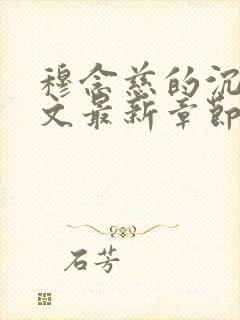 穆念慈的沉
文最新章节
石芳